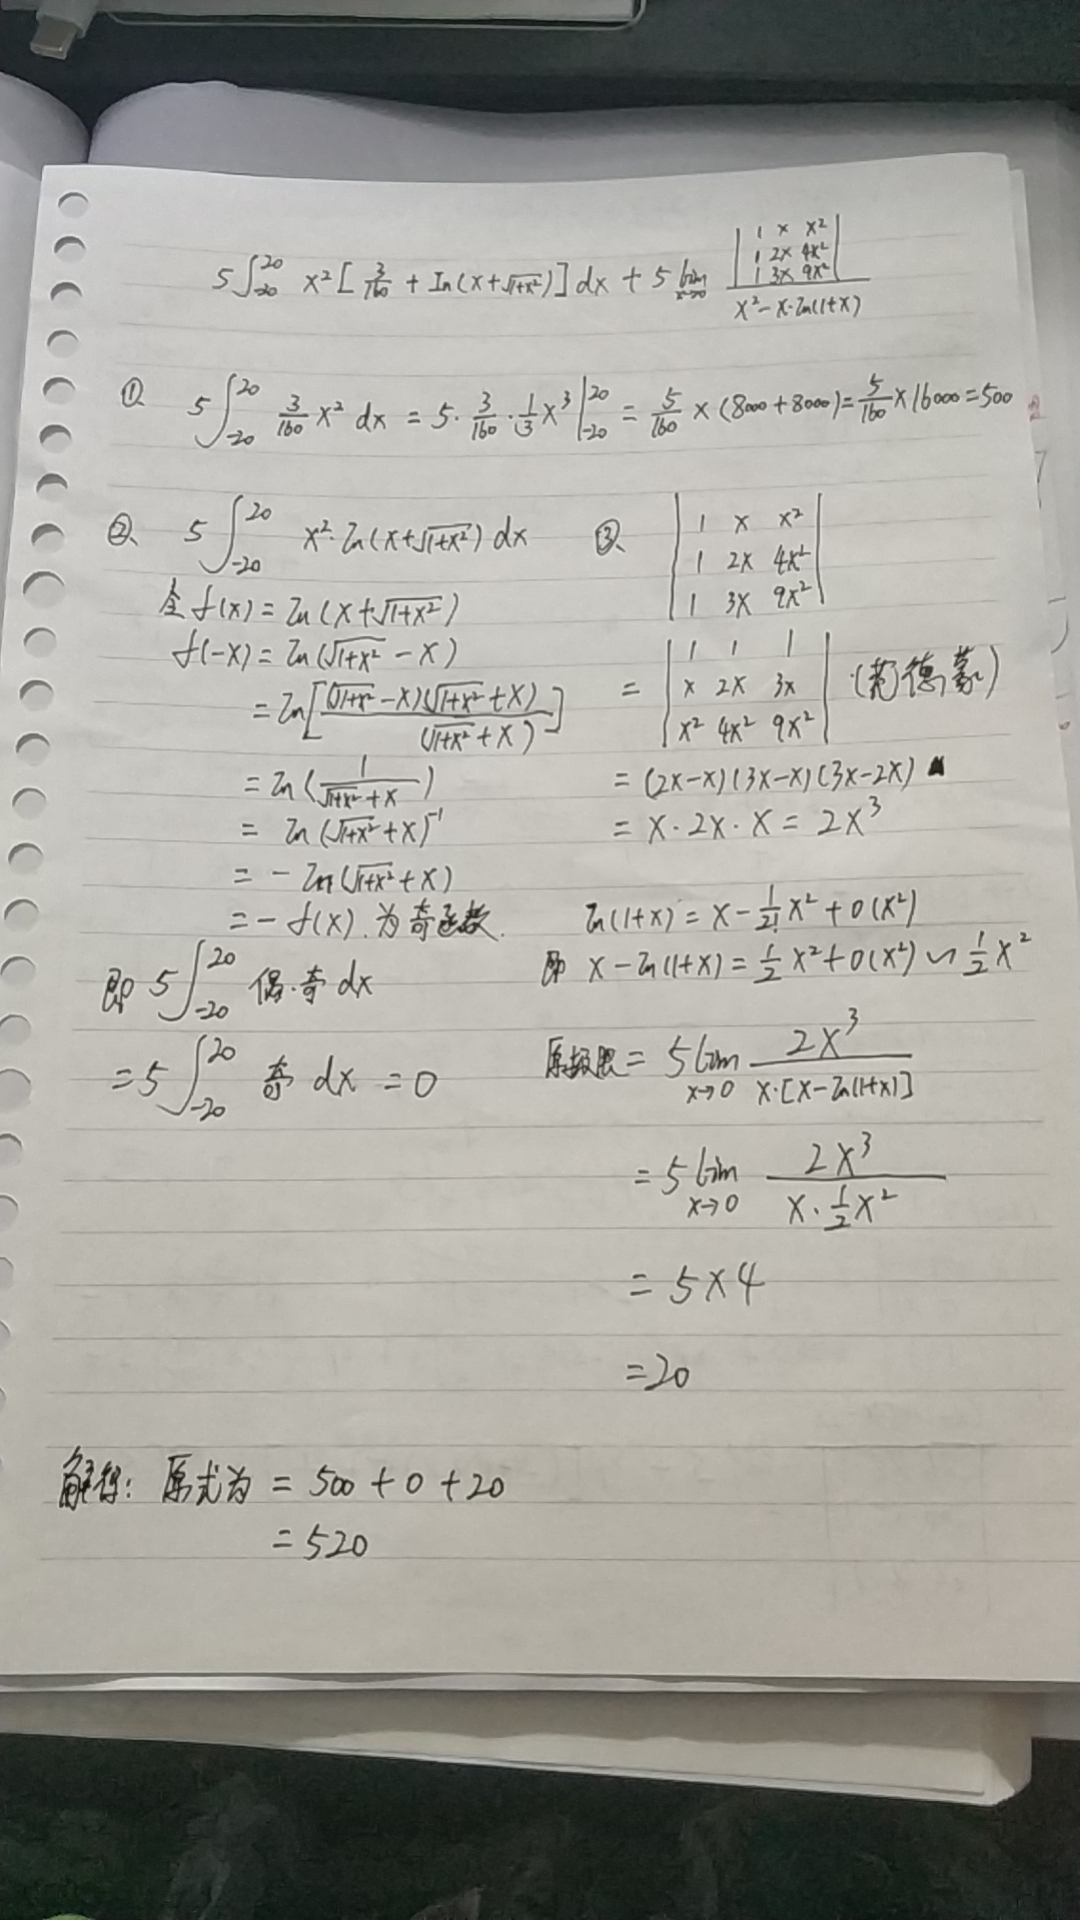 5∫₋₂₀²⁰ x²[3/160 + ln(x+√(1+x²))]dx + 5 lim_{x→0} |1 x x²; 1 2x 4x²; 1 3x 9x²| / (x²-x·ln(1+x))
①、 5∫₋₂₀²⁰ 3/160 x² dx = 5·3/160·1/3 x³|₋₂₀²⁰ = 5/160 × (8000+8000) = 5/160 × 16000 = 500
②、 5∫₋₂₀²⁰ x²·ln(x+√(1+x²)) dx
令 f(x) = ln(x+√(1+x²))
f(-x) = ln(√(1+x²) - x)
= ln[(√(1+x²) - x)(√(1+x²) + x) / (√(1+x²) + x)]
= ln(1/(√(1+x²) + x))
= ln(√(1+x²) + x)⁻¹
= - ln(√(1+x²) + x)
= - f(x). 为奇函数.
即 5∫₋₂₀²⁰ 偶·奇 dx
= 5∫₋₂₀²⁰ 奇 dx = 0
③、 |1 x x²; 1 2x 4x²; 1 3x 9x²|
= |1 1 1; x 2x 3x; x² 4x² 9x²| (范德蒙)
= (2x-x)(3x-x)(3x-2x)
= x·2x·x = 2x³
ln(1+x) = x - 1/2! x² + o(x²)
即 x - ln(1+x) = 1/2 x² + o(x²) ~ 1/2 x²
原极限 = 5 lim_{x→0} 2x³ / (x·[x-ln(1+x)])
= 5 lim_{x→0} 2x³ / (x·1/2 x²)
= 5×4
= 20
解得: 原式为 = 500 + 0 + 20
= 520